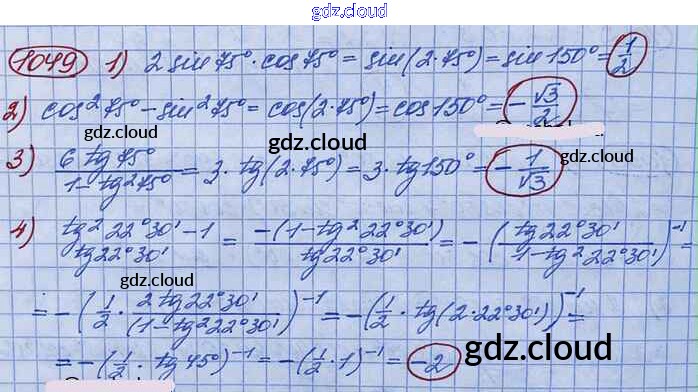 gdz.cloud
1049 1) 2 sin 75° · cos 75° = sin(2·75°) = sin 150° = 1/2
2) cos² 75° − sin² 75° = cos(2·75°) = cos 150° = −√3/2
gdz.cloud gdz.cloud
gdz.cloud
3) 6 tg 75° / (1 − tg² 75°) = 3 · tg(2·75°) = 3 · tg 150° = −1/√3
4) (tg² 22°30' − 1) / tg 22°30' = −(1 − tg² 22°30') / tg 22°30' = −(tg 22°30' / (1 − tg² 22°30'))⁻¹ =
gdz.cloud
= −(1/2 · 2 tg 22°30' / (1 − tg² 22°30'))⁻¹ = −(1/2 · tg(2·22°30'))⁻¹ =
= −(1/2 · tg 45°)⁻¹ = −(1/2 · 1)⁻¹ = −2
gdz.cloud